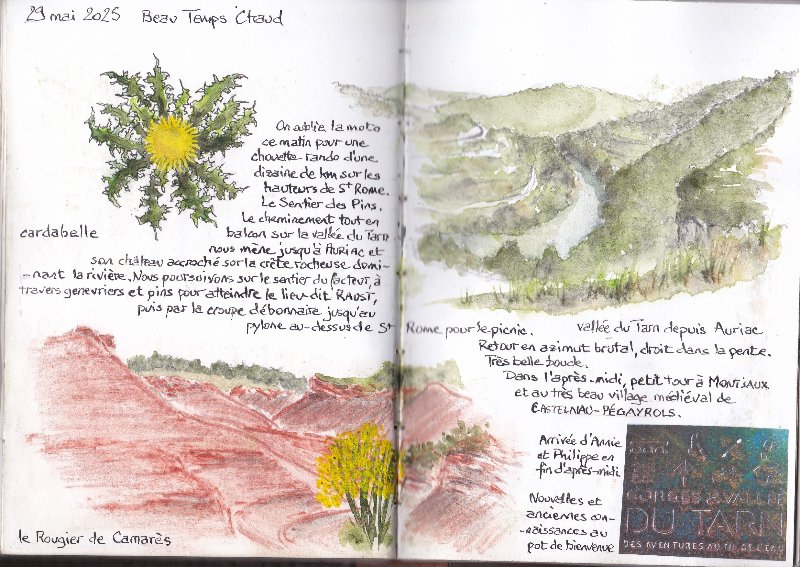 29 mai 2025 Beau Temps Chaud
On oublie la moto
ce matin pour une
chouette rando d'une
dizaine de km sur les
hauteurs de St Rome.
Le Sentier des Pins.
Le cheminement tout en
balcon sur la vallée du Tarn
nous mène jusqu'à AURIAC et
son château accroché sur la crête rocheuse domi-
-nant la rivière. Nous poursuivons sur le sentier du facteur, à
travers genevriers et pins pour atteindre le lieu-dit RAUST,
puis par la croupe débonnaire jusqu'au
pylone au-dessus de St Rome pour le picnic.
cardabelle
vallée du Tarn depuis Auriac
Retour en azimut brutal, droit dans la pente.
Très belle boucle.
Dans l'après-midi, petit tour à MONTJAUX
et au très beau village médiéval de
CASTELNAU-PÉGAYROLS.
Arrivée d'Annie
et Philippe en
fin d'après-midi
Nouvelles et
anciennes con-
-naissances au
pot de bienvenue
le Rougier de Camarès
GORGES & VALLÉE
DU TARN
DES AVENTURES AU FIL DE L'EAU